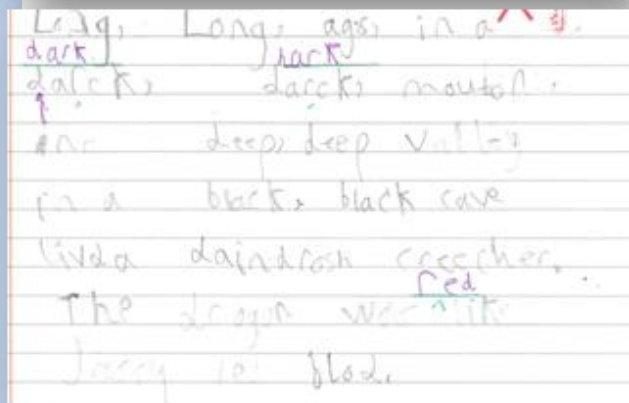 Long, Long, ago, in a
dark hark
darck, darck, mouton.
deep, deep Valley
in a black, black cave
livd a daindrosh creecher.
red
The dragon was like
blod.